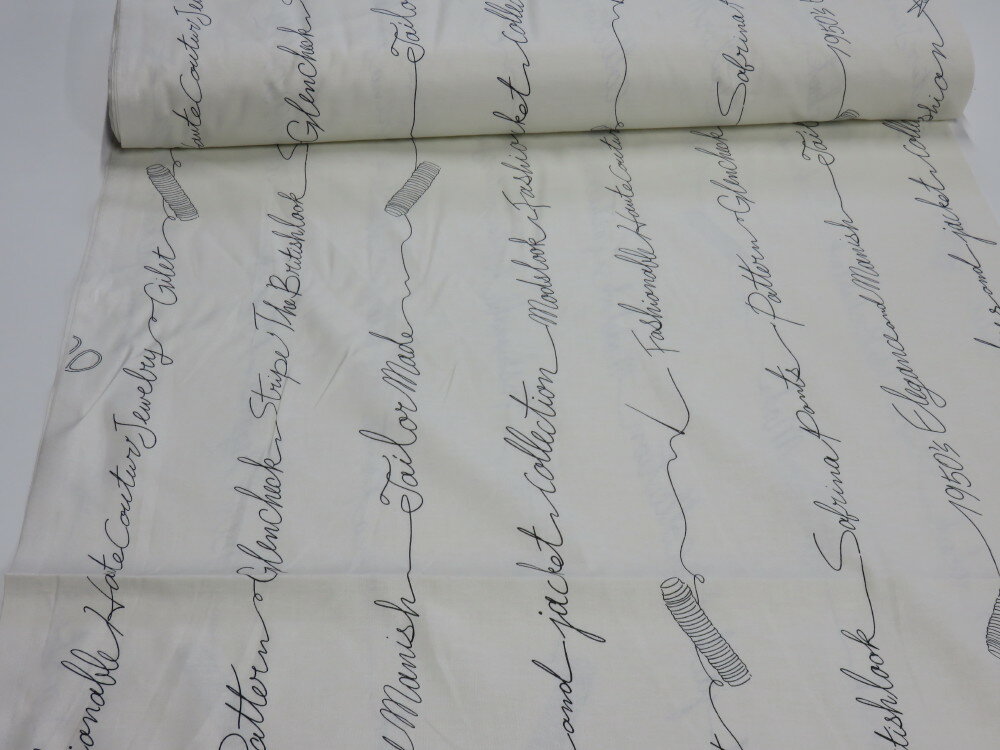 HateCoutur Jewelry Gilet HauteCoutur Je
Pattern Glencheck Stripe The Britishlook Glencheck
Manish Tailor Made Tailo
and jacket collection Modslook Fashion ket Colle
Fashionable HauteCoutur
Sabrina Pants Pattern Glencheck Sabrina
tishlook
1950's Elegance and Manish Tail 1950's
and jacket Coll shion